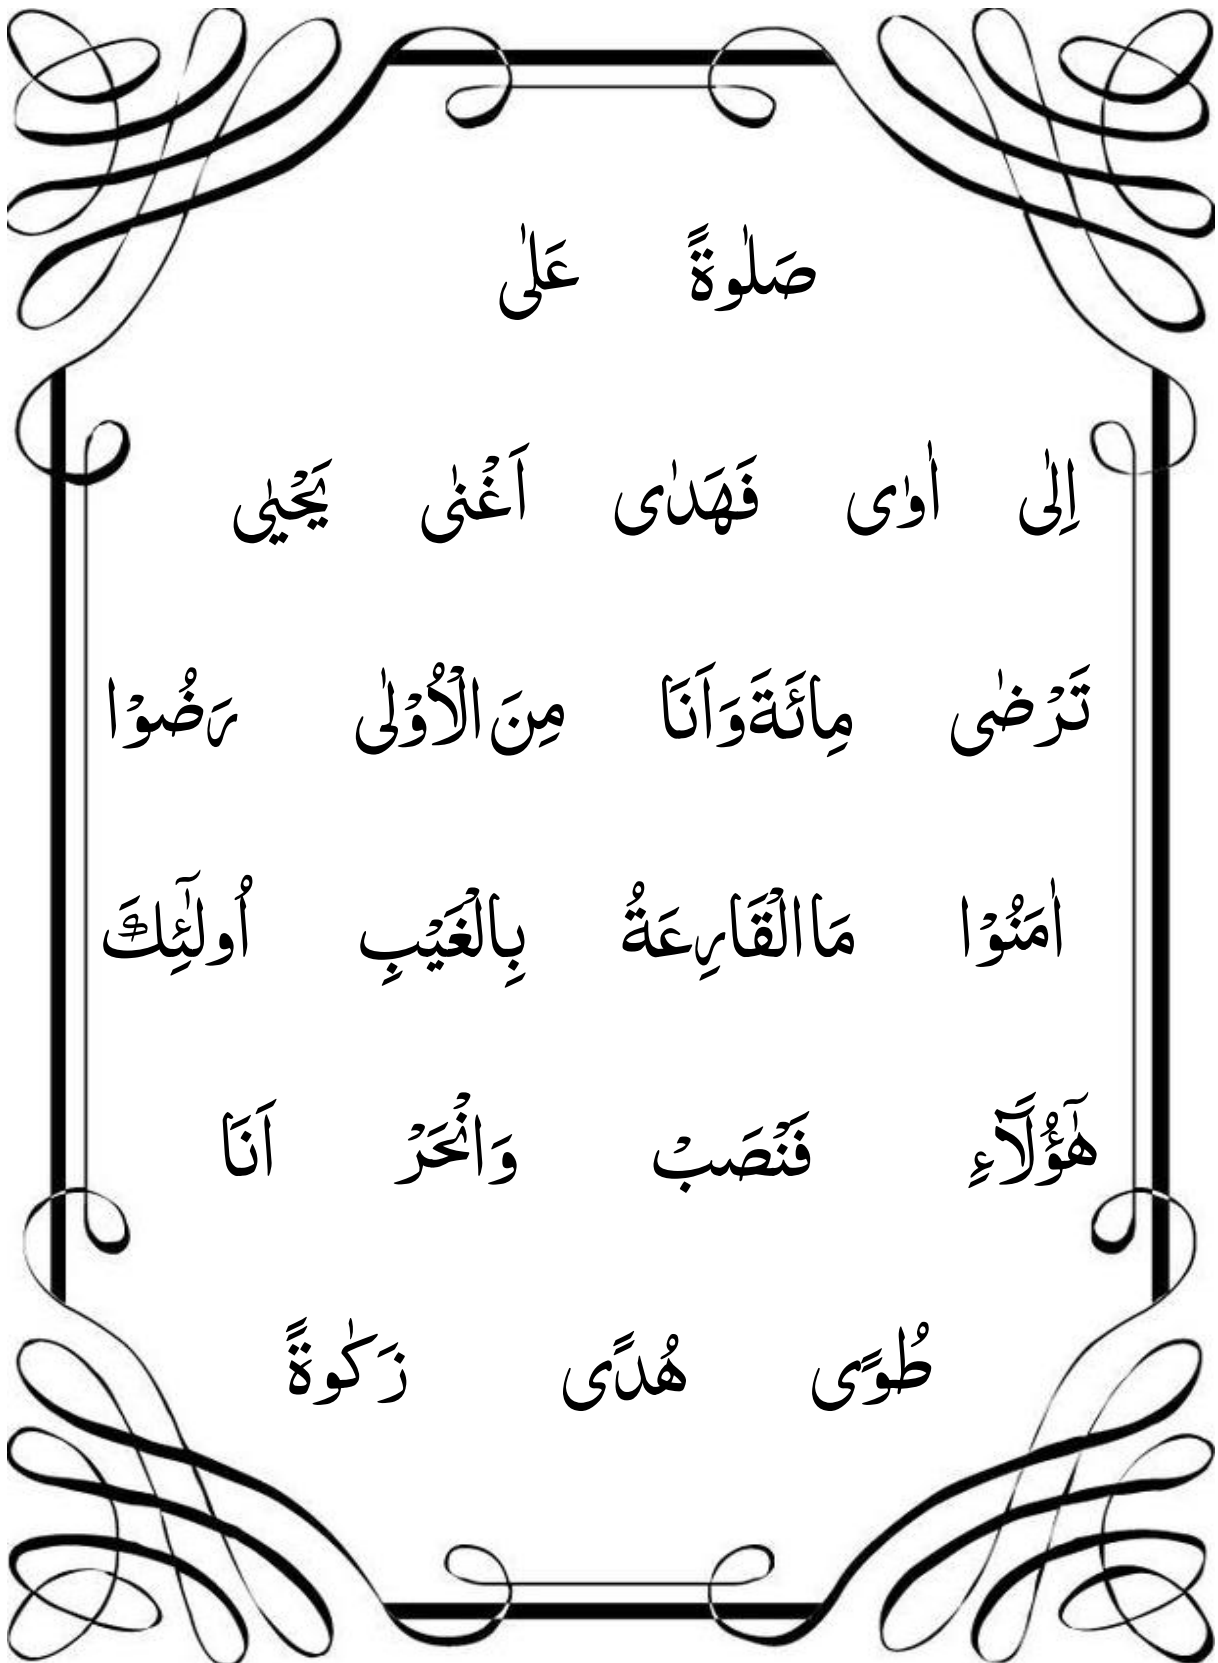 صَلٰوةً عَلٰى
اِلٰى اٰوٰى فَهَدٰى اَغْنٰى يَحْيٰى
تَرْضٰى مِائَةَ وَاَنَا مِنَ الْاُوْلٰى رَضُوْا
اٰمَنُوْا مَا الْقَارِعَةُ بِالْغَيْبِ اُولٰٓئِكَ
هٰٓؤُلَآءِ فَنْصَبْ وَانْحَرْ اَنَا
طُوًى هُدًى زَكٰوةً